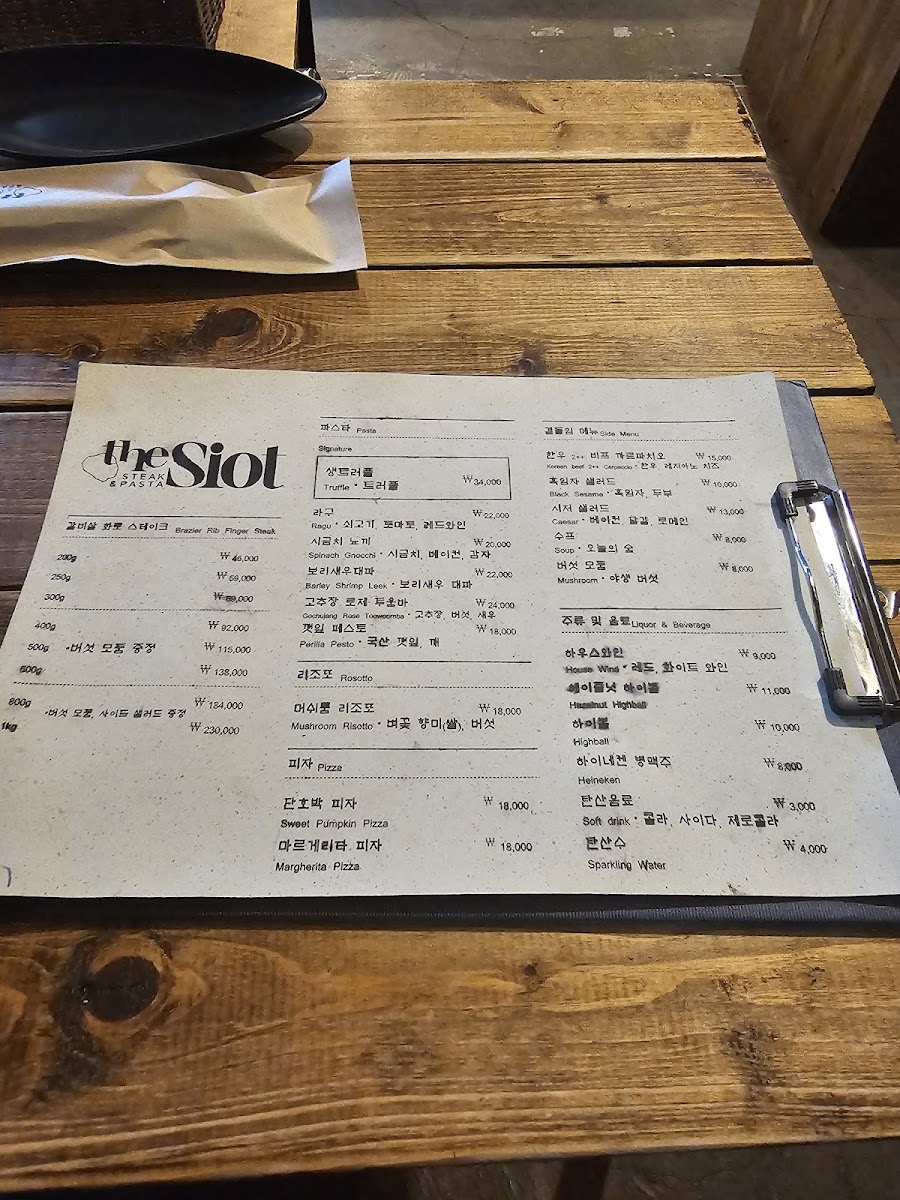 the Siot
STEAK
& PASTA
갈비살 화로 스테이크 Brazier Rib Finger Steak
200g ₩ 46,000
250g ₩ 59,000
300g ₩ 69,000
400g ₩ 92,000
500g •버섯 모둠 증정 ₩ 115,000
600g ₩ 138,000
800g •버섯 모둠, 사이드 샐러드 증정 ₩ 184,000
1kg ₩ 230,000
파스타 Pasta
Signature
생트러플 ₩34,000
Truffle • 트러플
라구 ₩22,000
Ragu • 쇠고기, 토마토, 레드와인
시금치 뇨끼 ₩20,000
Spinach Gnocchi • 시금치, 베이컨, 감자
보리새우대파 ₩22,000
Barley Shrimp Leek • 보리새우 대파
고추장 로제 투움바 ₩24,000
Gochujang Rose Toowoomba • 고추장, 버섯, 새우
깻잎 페스토 ₩18,000
Perilla Pesto • 국산 깻잎, 깨
리조또 Rosotto
머쉬룸 리조또 ₩18,000
Mushroom Risotto • 벼꽃 향미(쌀), 버섯
피자 Pizza
단호박 피자 ₩ 18,000
Sweet Pumpkin Pizza
마르게리타 피자 ₩ 18,000
Margherita Pizza
곁들임 메뉴 Side Menu
한우 2++ 비프 까르파치오 ₩15,000
Korean beef 2++ Carpaccio • 한우, 레지아노 치즈
흑임자 샐러드 ₩10,000
Black Sesame • 흑임자, 두부
시저 샐러드 ₩13,000
Caesar • 베이컨, 달걀, 로메인
수프 ₩8,000
Soup • 오늘의 숲
버섯 모둠 ₩8,000
Mushroom • 야생 버섯
주류 및 음료 Liquor & Beverage
하우스와인 ₩9,000
House Wind • 레드, 화이트 와인
헤이즐넛 하이볼 ₩ 11,000
Hazelnut Highball
하이볼 ₩ 10,000
Highball
하이네켄 병맥주 ₩8,000
Heineken
탄산음료 ₩3,000
Soft drink • 콜라, 사이다, 제로콜라
탄산수 ₩ 4,000
Sparkling Water